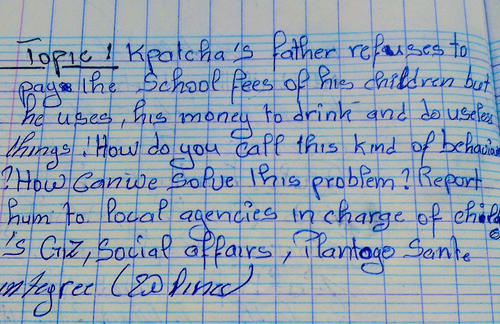 Topic! Kpatcha's father refuses to
pays the School fees of his children but
he uses, his money to drink and do useless
things! How do you call this kind of behaviour
? How can we solve this problem? Report
him to local agencies in charge of child
's GIZ, Social affairs, Plantogo Sante
integree